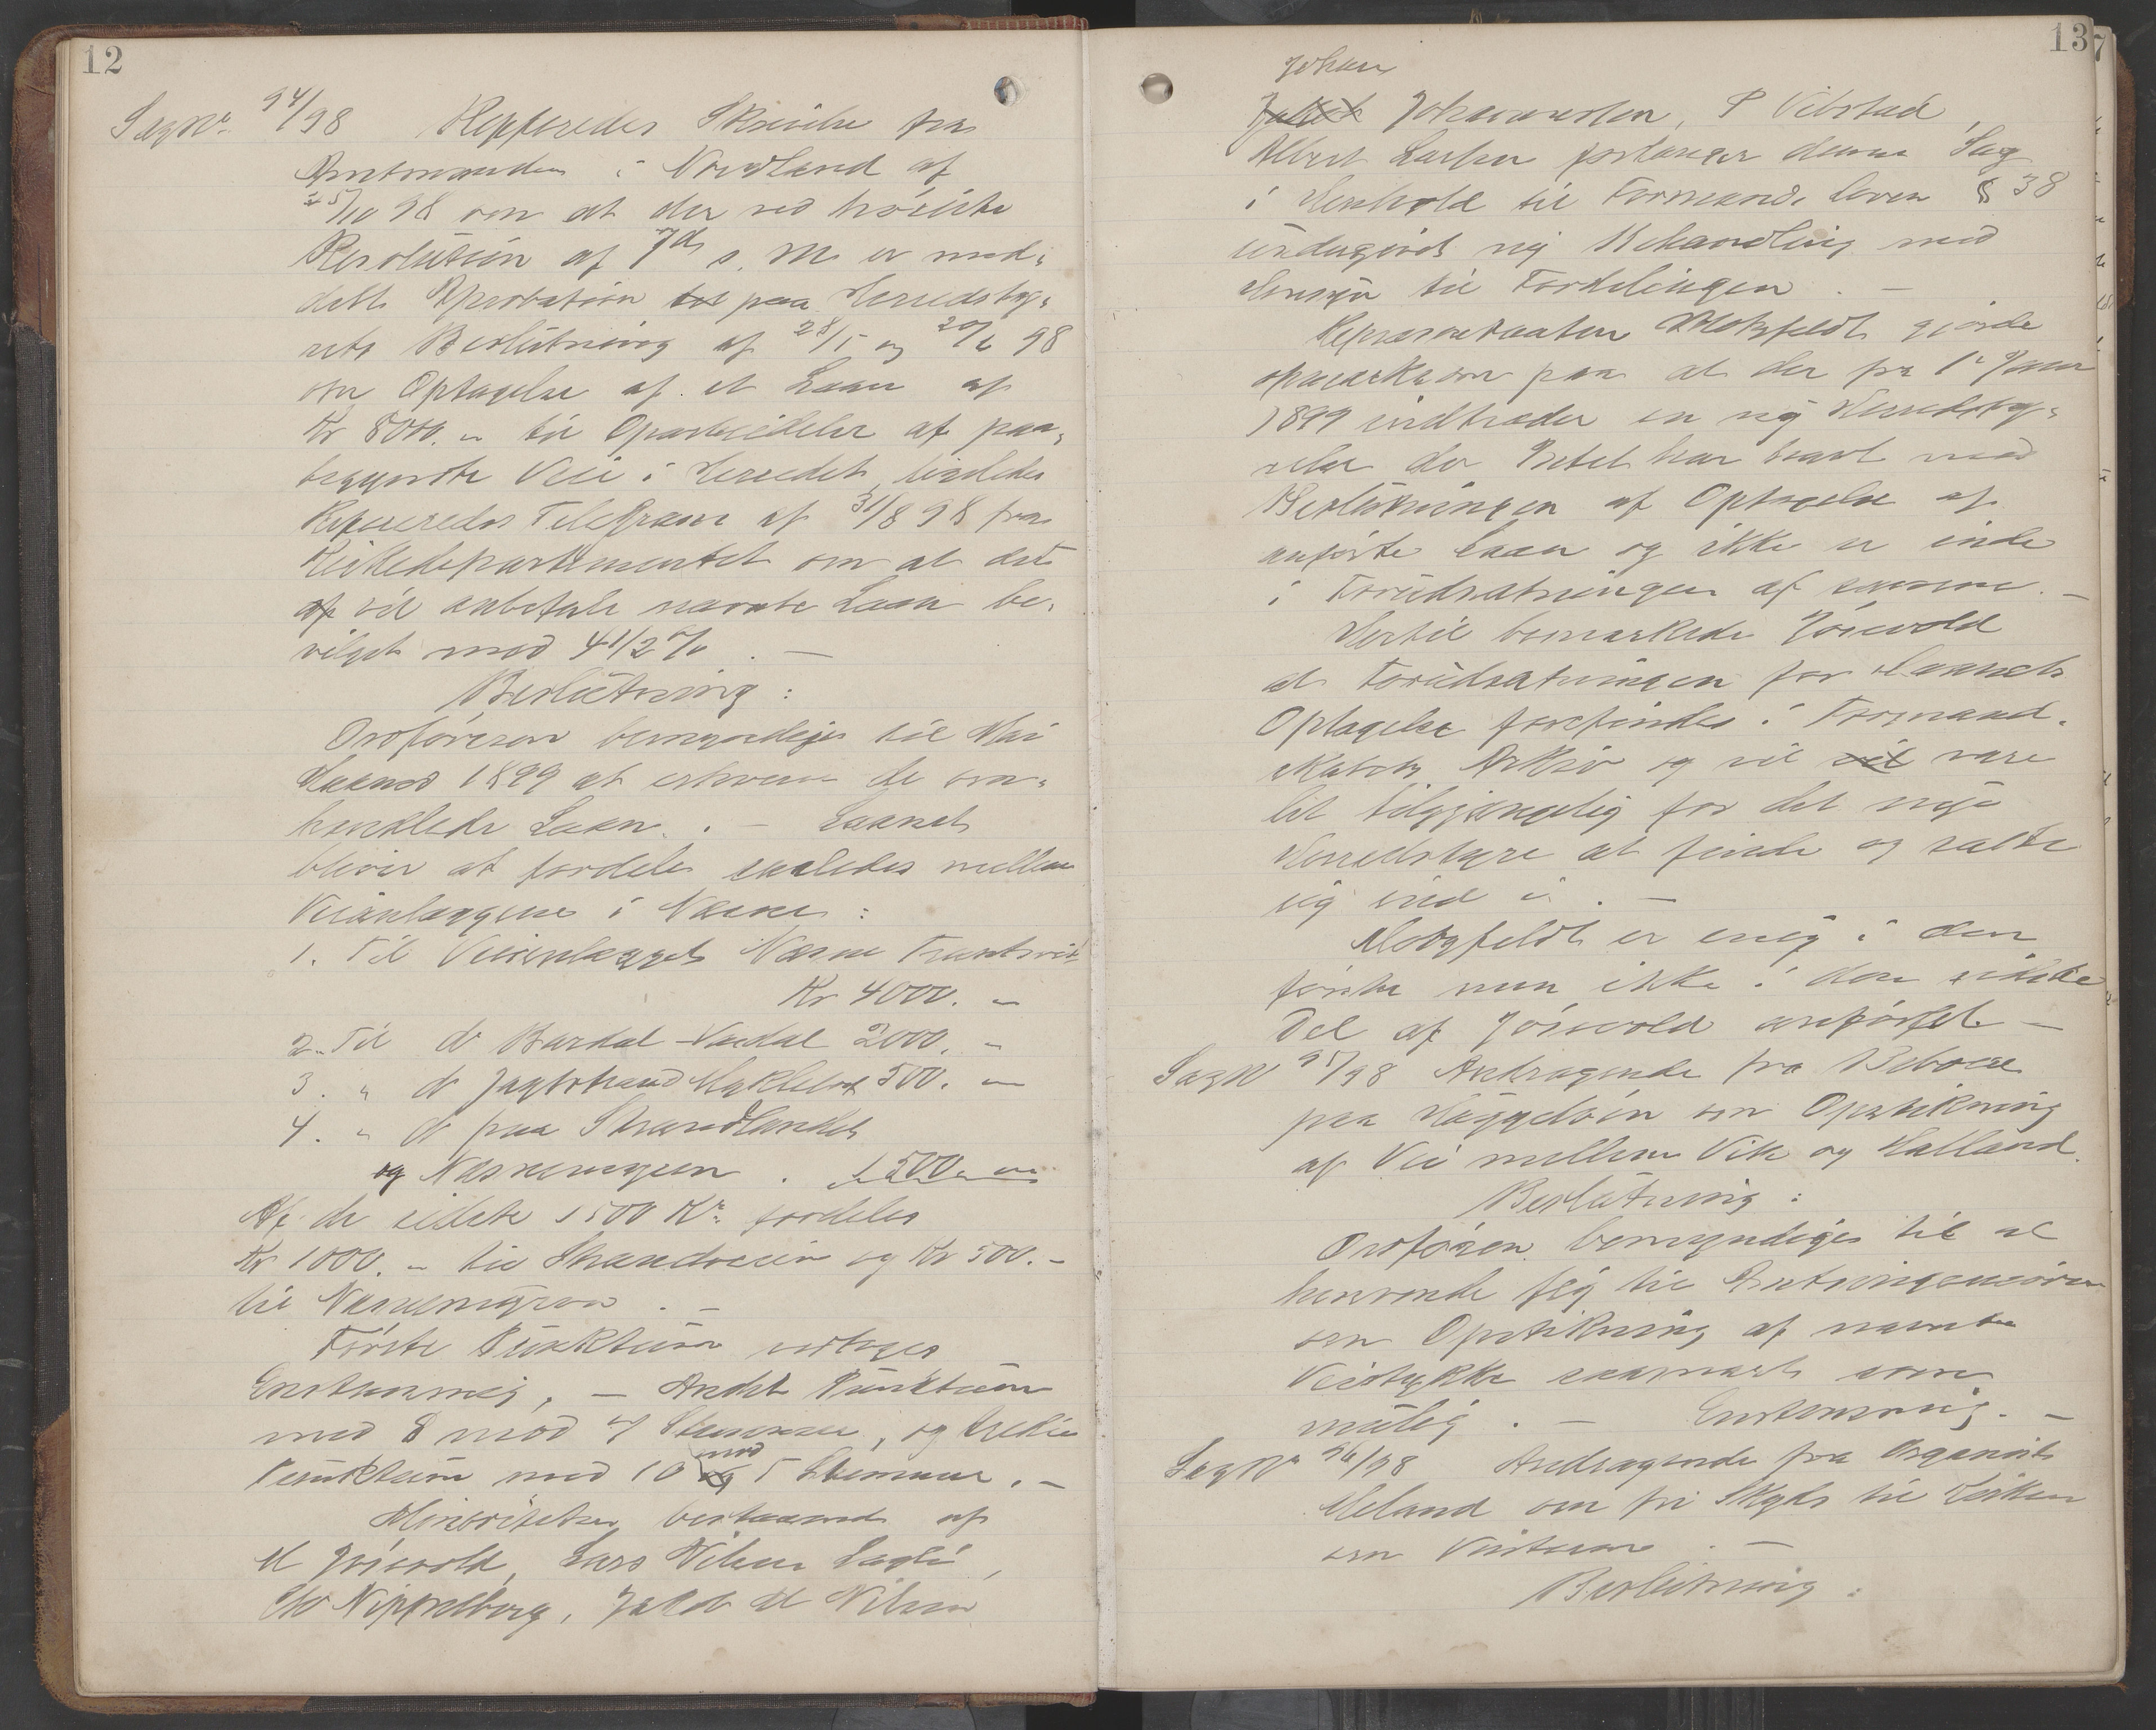 12
Sag Nr. 94/98 Refferedes Skrivelse fra
Amtmanden i Nordland af
25/10 98 om at der ved høieste
Resolution af 7de s. M. er med-
delt Aprobation paa Herredsty-
rets Beslutning af 28/5 og 20/6 98
om Optagelse af et Laan af
Kr 8000.- til Oparbeidelse af paa-
begyndte Veie i Herredet, ligeledes
Refereredes Telegram af 31/8 98 fra
Kirkedepartementet om at det
vil anbefale nævnte Laan be-
vilget mod 4 1/2 % . —
Beslutning:
Ordføreren bemyndiges til Mai
Maaned 1899 at erhverve de om-
handlede Laan. . — Laanet
bliver at fordele saaledes mellem
Veianlæggene i Næsne:
1. Til Veianlægget Næsne
Kr 4000. -
2. Til do Bardal - 2000. -
3. " do 500. -
4. " do paa Strandlandet
og Næsnemyren . 1500. -
Af de sidste 1500 Kr. fordeles
Kr 1000. - til Strandveien og Kr 500. -
til Næsnemyren . —
Første Punktum vedtages
Enstemmig, — Andet Punktum
med 8 mod 7 Stemmer, og tredie
Punktum med 10 mod 5 Stemmer. —
Minoriteten bestaaende af
M Jósvold, Lars Nilsen
Nippelborg, Jakob M Nilsen
13
Johan
Johannesen, P Vibstad,
Albert Larsen forlanger denne Sag
i Henhold til Formands loven § 38
undergivet ny Behandling med
Hensyn til Fordelingen . —
Repræsentanten Motzfeldt gjorde
opmærksom paa at der fra 1ste Januar
1899 indtræder en ny Herredsty-
relse der Intet har havt med
Beslutningen af Optagelse af
anførte Laan og ikke er inde
i Forudsætningen af samme. —
Hertil bemærkede Jósvold
at Forudsætningen for Laanets
Optagelse forefindes i Formand-
skabets Arkiv og vil være
let tilgjængelig for det nye
Herredstyre at finde og sætte
sig ind i . —
Motzfeldt er enig i den
første men ikke i den sidste
Del af Jósvold anførsel —
Sag Nr 95/98 Andragende fra Beboere
paa Huggeløen om Opstikning
af Vei mellem Vik og Halland.
Beslutning:
Ordføren bemyndiges til at
henvende sig til Amtsingeniøren
om Opstikning af nævnte
Veistykke snarest som
mulig . — Enstemmig. —
Sag Nr 96/98 Andragende fra Organist
Meland om fri Skyds til Kirken
om Vinteren . —
Beslutning: